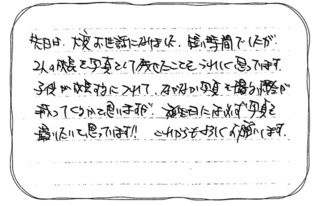 先日は、大変お世話になりました。短い時間でしたが
2人の成長を写真として残せたことをうれしく思っています。
子供が成長するに入れて、なかなか写真を撮る機会が
減ってくるかと思いますが、誕生日には必ず写真を
撮りたいと思っています!! これからもよろしくお願いします。